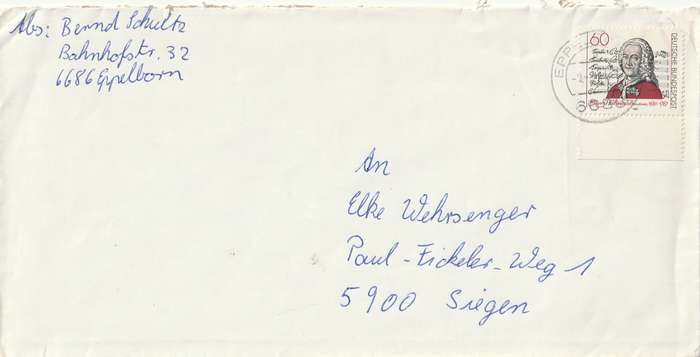 Abs: Bernd Schultz
Bahnhofstr. 32
6686 Eppelborn
60
DEUTSCHE BUNDESPOST
EPP
668
An
Elke Wehrsenger
Paul-Fickeler-Weg 1
5900 Siegen